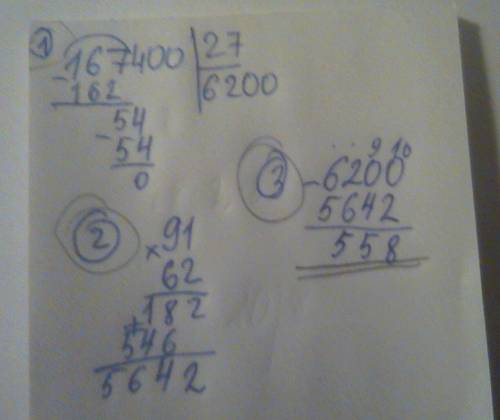 1 167400 | 27
- 162 | 6200
54
- 54
0
2 91
× 62
182
+ 546
5642
3 9 10
- 6200
5642
558